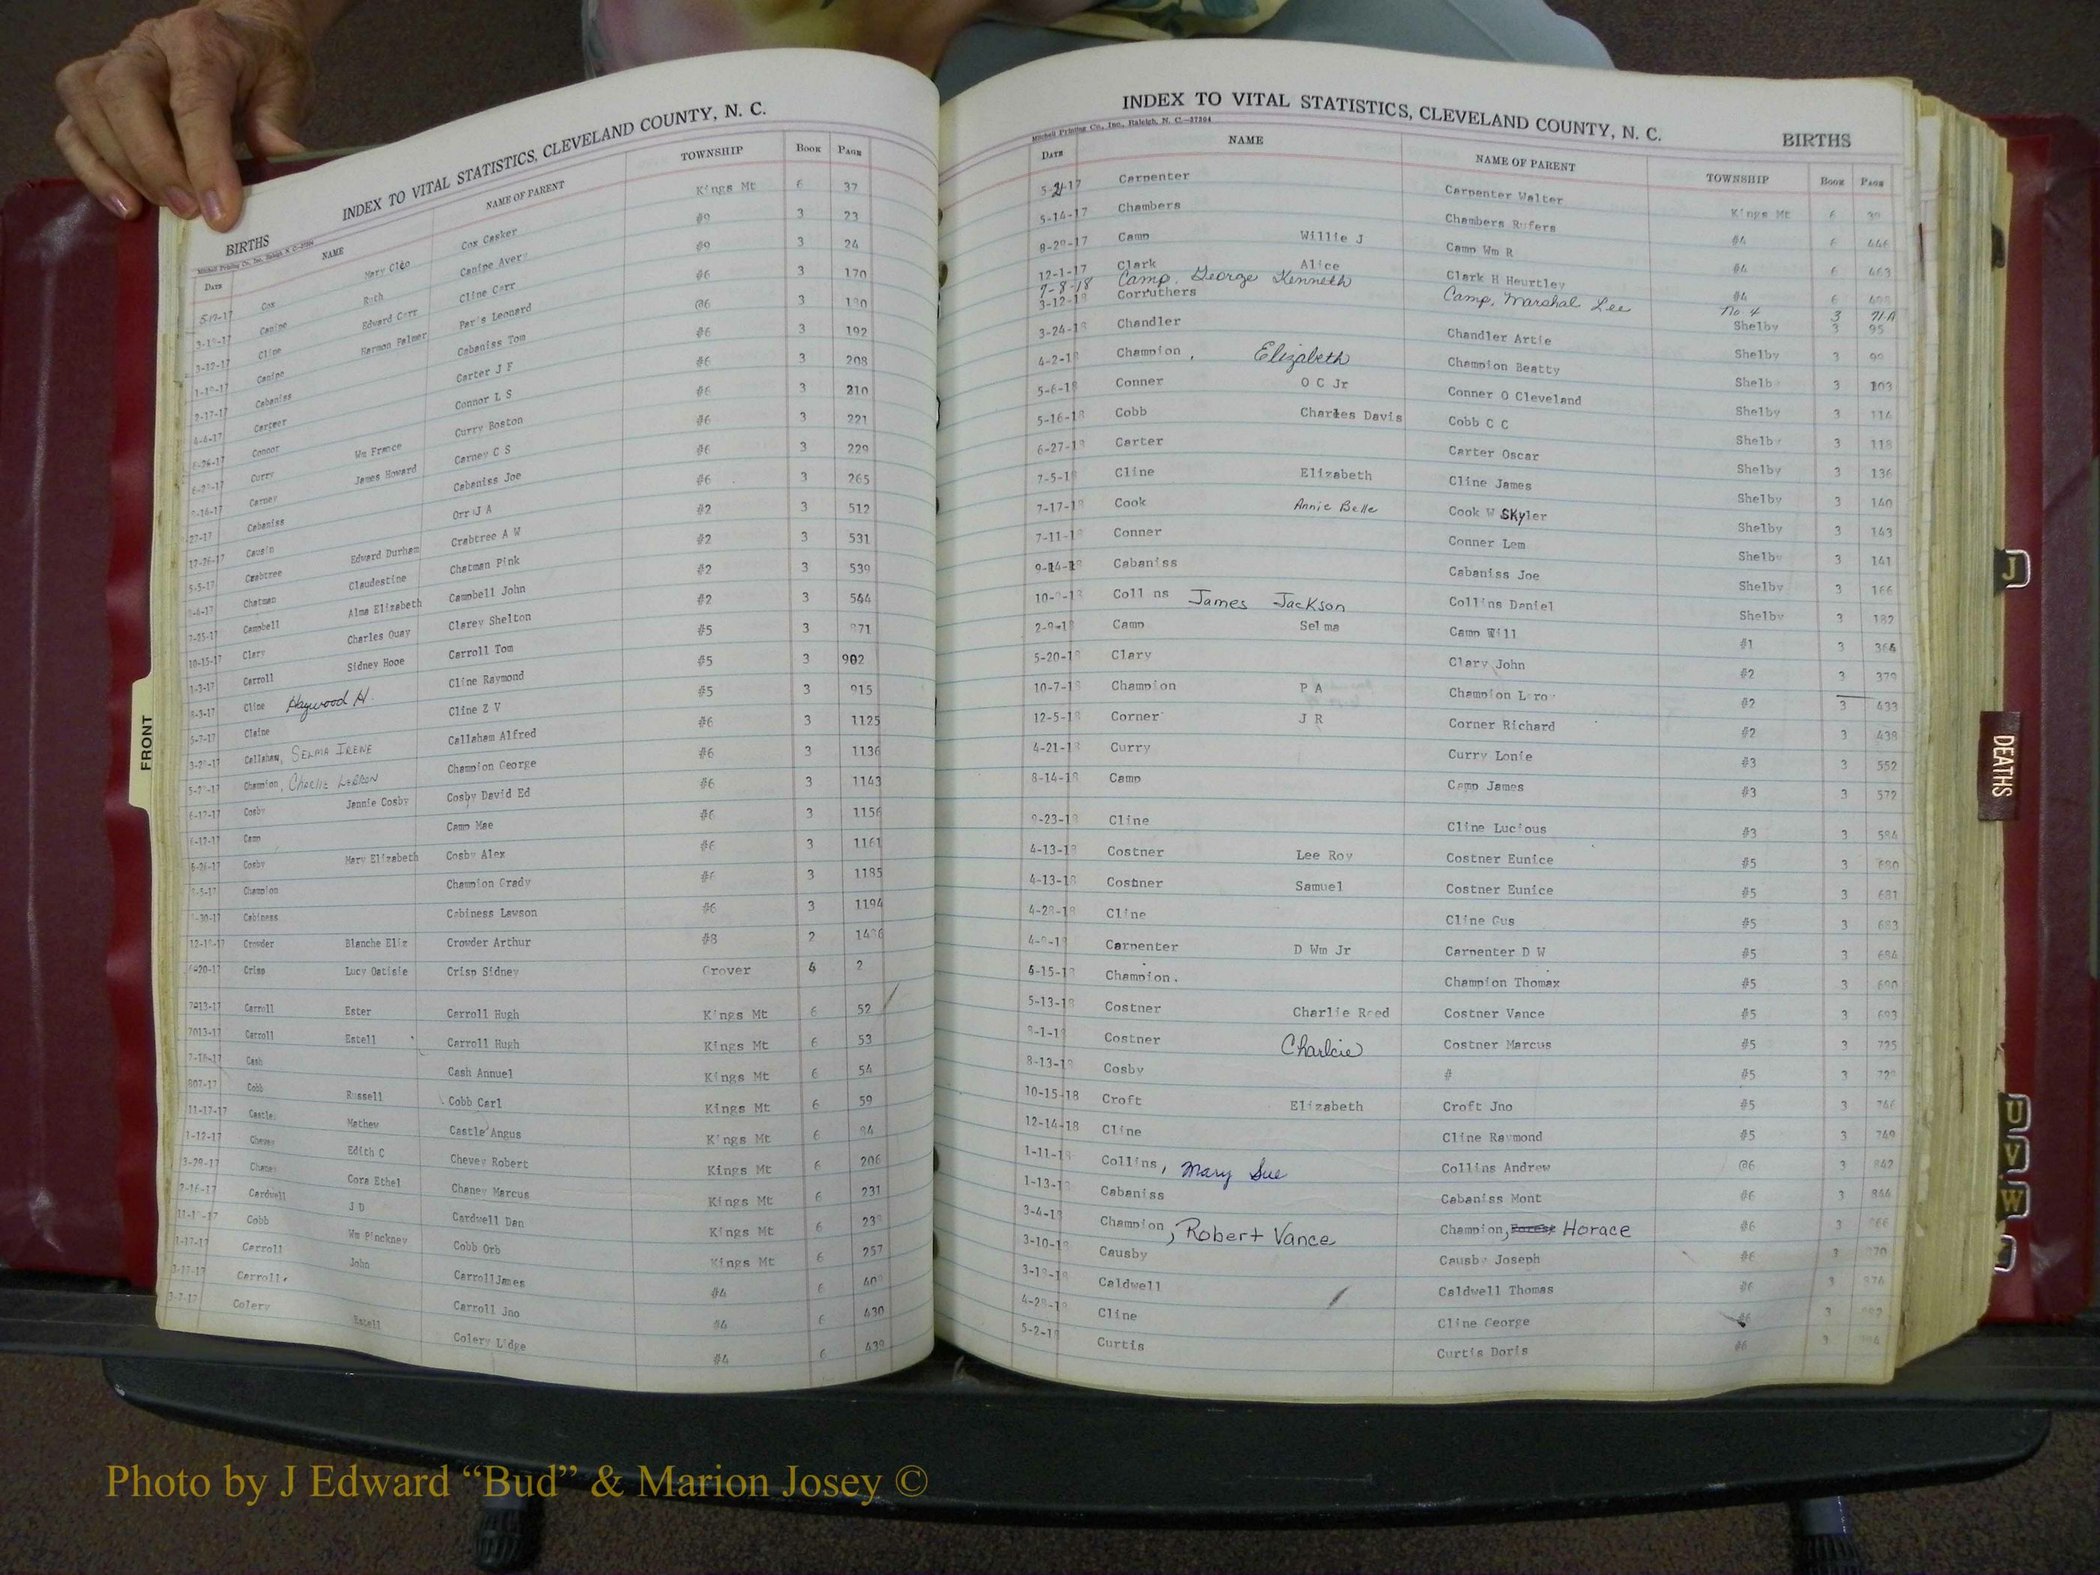 INDEX TO VITAL STATISTICS, CLEVELAND COUNTY, N. C.
BIRTHS
Mitchell Printing Co., Inc., Raleigh, N. C.—37304
DATE NAME NAME OF PARENT TOWNSHIP BOOK PAGE
5-12-17 Cox Mary Cleo Cox Casker Kings Mt 6 37
Canipe Ruth Canipe Avery #9 3 23
3-12-17 Cline Edward Carr Cline Carr #9 3 24
Canipe Harmon Palmer Leonard #6 3 170
2-17-17 Cabaniss Cabaniss Tom @6 3
4-4-17 Carter J F #6 3 192
Connor Connor L S #6 3 208
Curry Wm France Curry Boston #6 3 210
Carney James Howard Carney C S #6 3 221
Cabaniss Cabaniss Joe #6 3 229
12-26-17 Orr J A #6 3 265
5-5-17 Crabtree Edward Durham Crabtree A W #2 3 512
Chatman Claudestine Chatman Pink #2 3 531
Campbell Alma Elizabeth Campbell John #2 3 539
10-15-17 Clary Charles Quay Clarey Shelton #2 3 544
1-3-17 Carroll Sidney Hope Carroll Tom #5 3 871
Cline Haywood H Cline Raymond #5 3 902
5-7-17 Claine Cline Z V #5 3 915
Callaham, SELMA IRENE Callaham Alfred #6 3 1125
Champion, CHARLIE LERRON Champion George #6 3 1136
6-17-17 Cosby Jannie Cosby Cosby David Ed #6 3 1143
6-17-17 Camp Camp Mae #6 3 1156
Cosby Mary Elizabeth Cosby Alex #6 3 1161
Champion Champion Grady #6 3 1185
Cabiness Cabiness Lawson #6 3 1194
Crowder Blanche Eliz Crowder Arthur #8 2
Crisp Lucy Oatisie Crisp Sidney Grover 4 2
7@13-17 Carroll Ester Carroll Hugh Kings Mt 6 52
7013-17 Carroll Estell Carroll Hugh Kings Mt 6 53
7-16-17 Cash Cash Annuel Kings Mt 6 54
807-17 Cobb Russell Cobb Carl Kings Mt 6 59
11-17-17 Castle Mathew Castle Angus Kings Mt 6 94
1-12-17 Edith C Chevev Robert Kings Mt 6 206
3-29-17 Chaney Cora Ethel Chaney Marcus Kings Mt 6 231
2-16-17 Cardwell J D Cardwell Dan Kings Mt 6
Cobb Wm Pinckney Cobb Orb Kings Mt 6 257
1-17-17 Carroll John Carroll James #4 6
3-17-17 Carroll Carroll Jno #4 6 430
3-7-17 Colery Estell Colery Lidge #4 6 439
INDEX TO VITAL STATISTICS, CLEVELAND COUNTY, N. C.
BIRTHS
Mitchell Printing Co., Inc., Raleigh, N. C.—37304
DATE NAME NAME OF PARENT TOWNSHIP BOOK PAGE
5-21-17 Carpenter Carpenter Walter Kings Mt 6 39
5-14-17 Chambers Chambers Rufers #4 6 446
8-29-17 Camp Willie J Camp Wm R #4 6 463
12-1-17 Clark Alice Clark H Heurtley #4 6
7-8-18 Camp, George Kenneth Camp, Marshal Lee No 4 3 71-A
3-12-18 Corruthers Shelby 3 95
3-24-18 Chandler Chandler Artie Shelby 3 99
4-2-18 Champion, Elizabeth Champion Beatty Shelby 3 103
5-6-18 Conner O C Jr Conner O Cleveland Shelby 3 114
5-16-18 Cobb Charles Davis Cobb C C Shelby 3 118
6-27-18 Carter Carter Oscar Shelby 3 136
7-5-18 Cline Elizabeth Cline James Shelby 3 140
7-17-18 Cook Annie Belle Cook W Skyler Shelby 3 143
7-11-18 Conner Conner Lem Shelby 3 141
9-14-18 Cabaniss Cabaniss Joe Shelby 3 166
Collins James Jackson Collins Daniel Shelby 3 182
2-9-18 Camp Selma Camp Will #1 3 364
5-20-18 Clary Clary John #2 3 379
10-7-18 Champion P A Champion #2 3 433
12-5-18 Corner J R Corner Richard #2 3 438
4-21-18 Curry Curry Lonie #3 3 552
8-14-18 Camp Camp James #3 3 572
9-23-18 Cline Cline Lucious #3 3 584
4-13-18 Costner Lee Roy Costner Eunice #5 3 680
4-13-18 Costner Samuel Costner Eunice #5 3 681
4-28-18 Cline Cline Gus #5 3 683
Carpenter D Wm Jr Carpenter D W #5 3 684
4-15-18 Champion. Champion Thomax #5 3 690
5-13-18 Costner Charlie Reed Costner Vance #5 3 693
Costner Charlcie Costner Marcus #5 3 725
8-13-18 Cosby # #5 3
10-15-18 Croft Elizabeth Croft Jno #5 3 746
12-14-18 Cline Cline Raymond #5 3 749
1-11-18 Collins, Mary Sue Collins Andrew @6 3 842
1-13-18 Cabaniss Cabaniss Mont #6 3 844
3-4-18 Champion, Robert Vance Champion, Horace #6 3 866
3-10-18 Causby Causby Joseph #6 3 870
Caldwell Caldwell Thomas #6 3 876
Cline Cline George #6 3
5-2-18 Curtis Curtis Doris #6 3
FRONT
J
DEATHS
U
V
W
Photo by J Edward “Bud” & Marion Josey ©